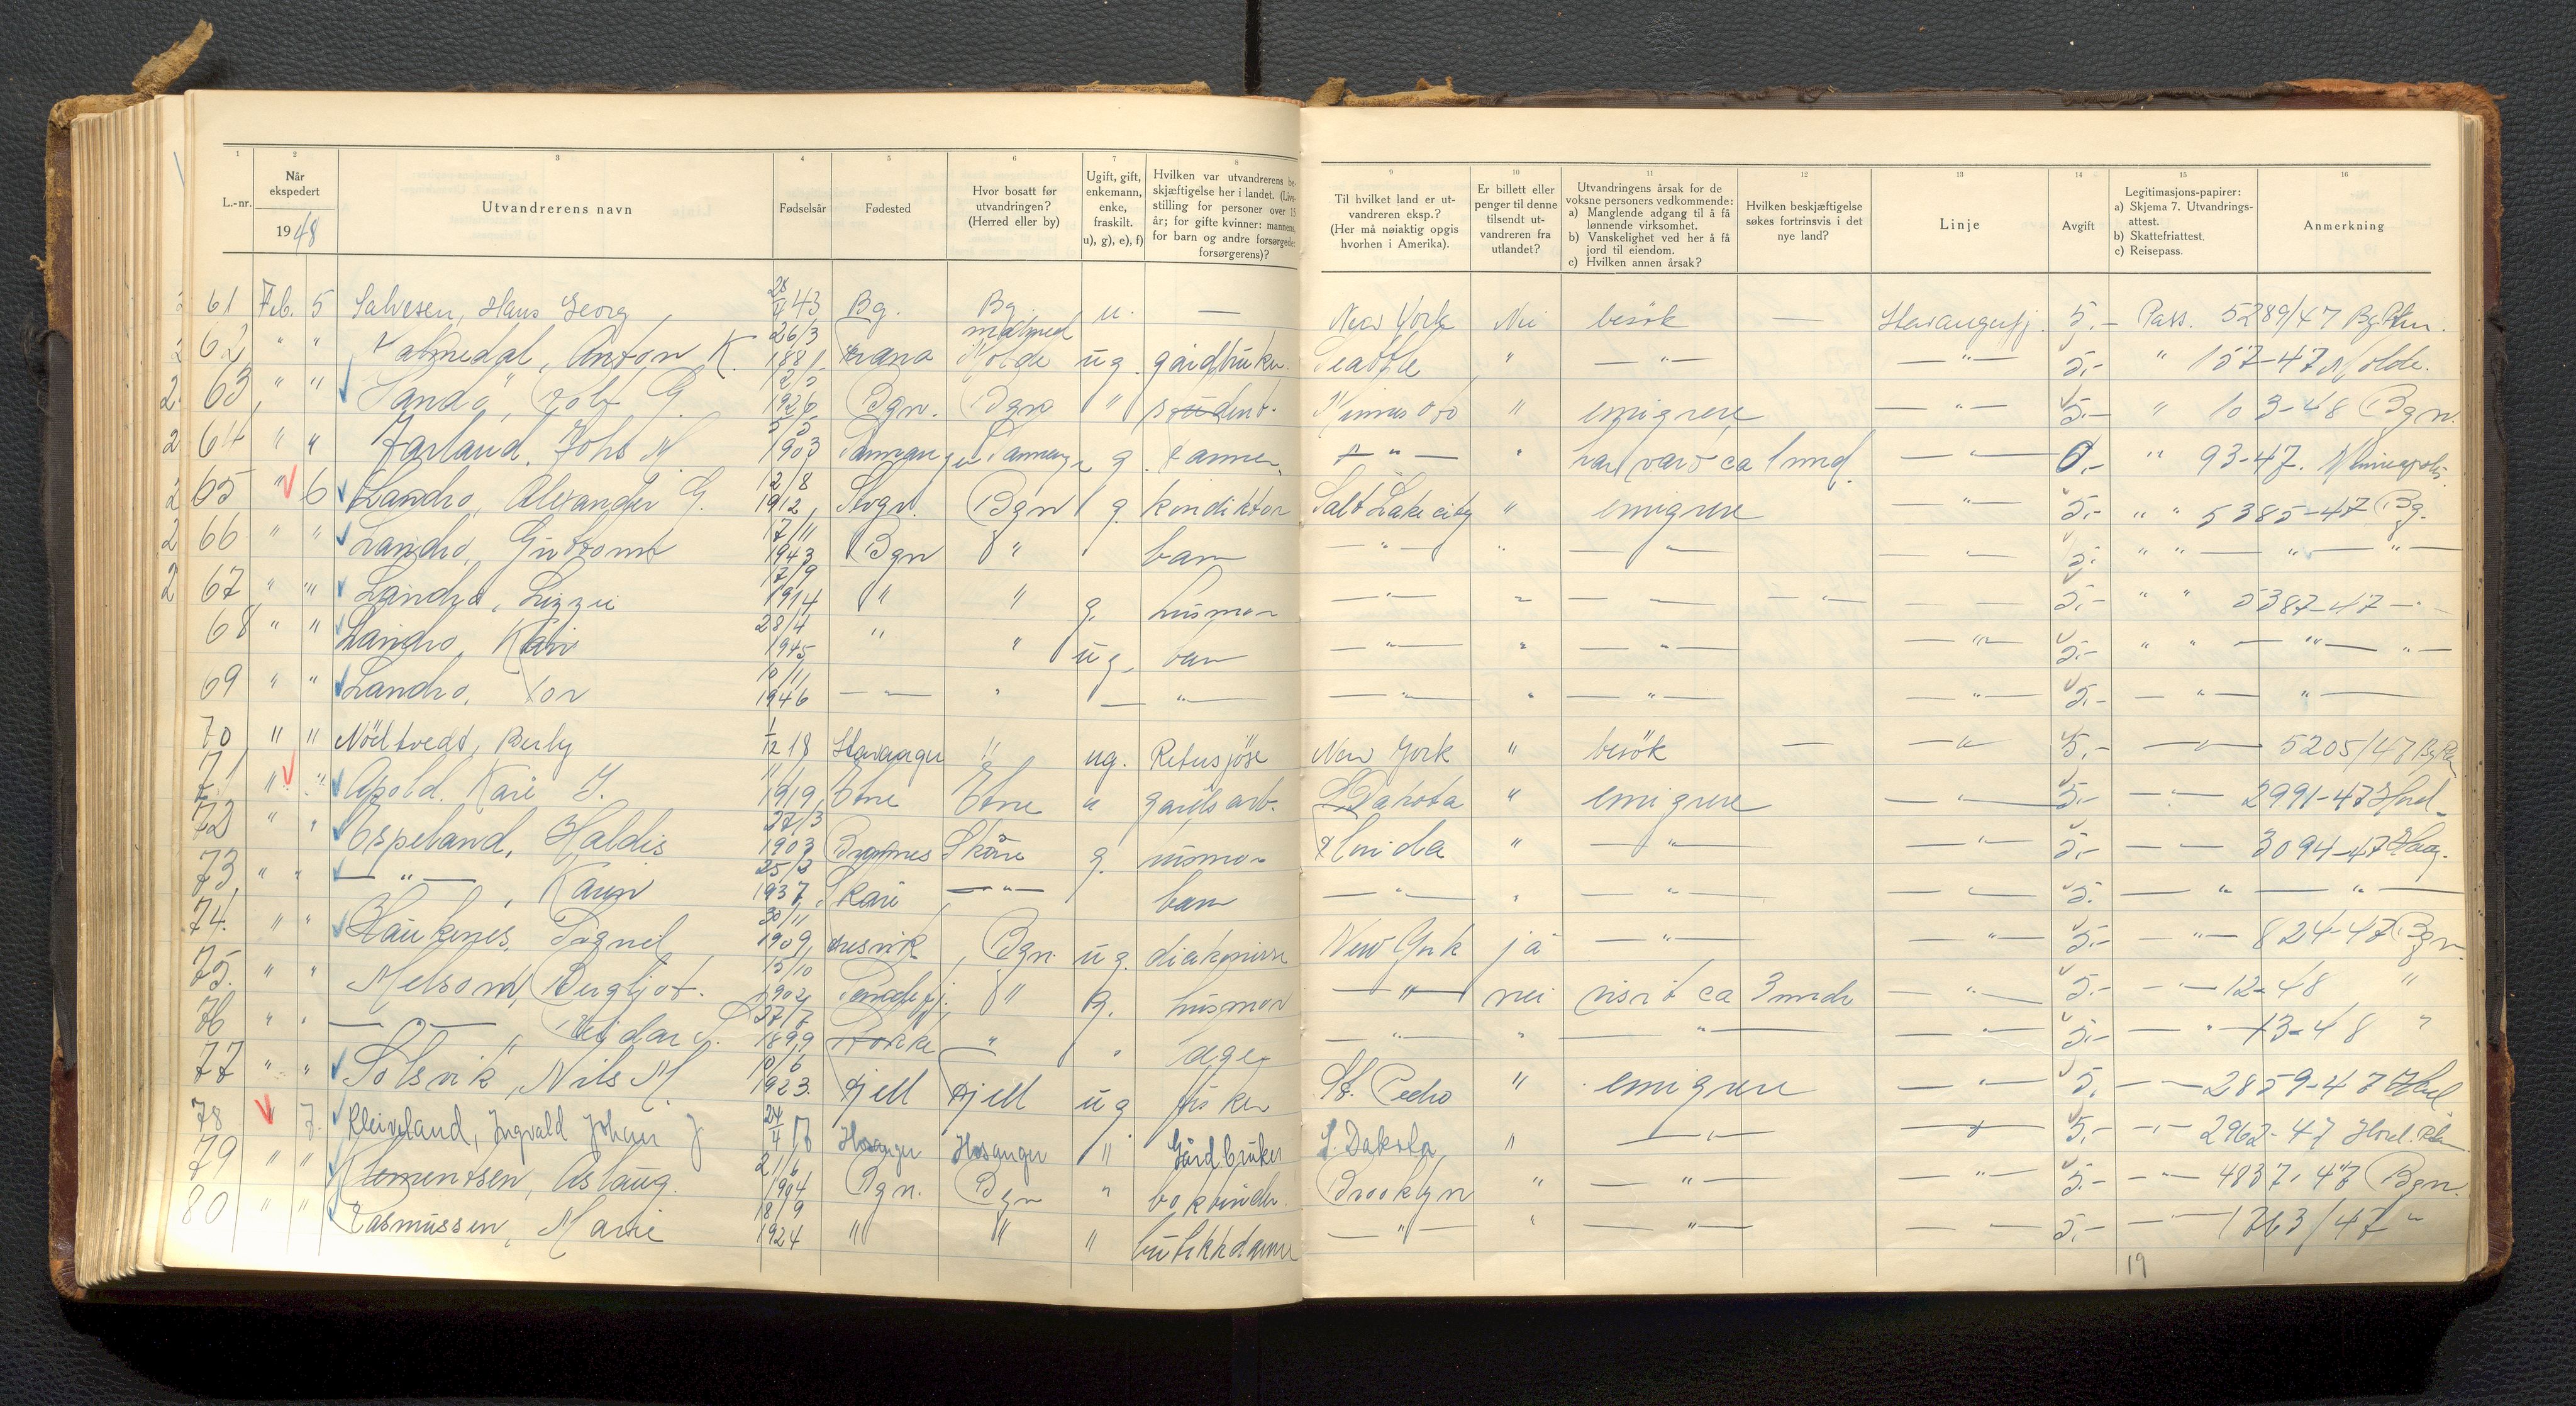 1 2 3 4 5 6 7 8 9 10 11 12 13 14 15 16
L.-nr. | Når ekspedert 1948 | Utvandrerens navn | Fødselsår | Fødested | Hvor bosatt før utvandringen? (Herred eller by) | Ugift, gift, enkemann, enke, fraskilt. u), g), e), f) | Hvilken var utvandrerens beskjæftigelse her i landet. (Livsstilling for personer over 15 år; for gifte kvinner: mannens, for barn og andre forsørgede: forsørgerens)? | Til hvilket land er utvandreren eksp.? (Her må nøiaktig opgis hvorhen i Amerika). | Er billett eller penger til denne tilsendt utvandreren fra utlandet? | Utvandringens årsak for de voksne personers vedkommende: a) Manglende adgang til å få lønnende virksomhet. b) Vanskelighet ved her å få jord til eiendom. c) Hvilken annen årsak? | Hvilken beskjæftigelse søkes fortrinsvis i det nye land? | Linje | Avgift | Legitimasjons-papirer: a) Skjema 7. Utvandringsattest. b) Skattefriattest. c) Reisepass. | Anmerkning
61 Feb. 5 Salvesen, Hans Georg 28/4 43 Bg. Bg. u. — New York Nei besök — Stavangerfj. 5,- Pass. 5289/47 Bg
62 " " Anton K. 26/3 1881 Molde ug. gårdbruker Seattle " —"— —"— 5,- " 157-47 Molde.
63 " " Sandö, Rolf G. 1926 Bgn. Bgn " student. " emigrere —"— 5,- " 103-48 Bgn.
64 " " Jarland, Johs M. 5/5 1903 g. —"— " har vært ca 1 mnd. —"— 0,- " 93-47. Minneapolis.
65 " 6 Landro, Alexander G. 12/8 1912 Bgn g. konduktør Salt Lake city " emigrere —"— 5,- " " 5385-47 Bg.
66 " " Landro, Guttorm 17/11 1943 Bgn " barn —"— " —"— —"— 5,- " " — " — " —
67 " " Landro, Lizzie 17/9 1914 " " g. husmor —"— " — — —"— — — 5,- " " 5387-47 —"—
68 " " Landro, Kari 28/4 1945 " " ug. barn —"— " —"— —"— 5,- " " — " — " —
69 " " Landro, Tor 10/11 1946 —"— " — —"— —"— " —"— —"— 5,- — " — " —
70 " " Nödtvedt, Berly 1/12 18 Stavanger " ug. Retusjöse New York " besök — —"— 5,- —"— 5205/47
71 " " Apold. Kari J. 1919 Etne Etne " gardsarb. S. Dakota " emigrere —"— 5,- —"— 2991-47 Hord.
72 " " Espeland, Haldis 27/3 1903 Skåre g. husmor Florida " —"— —"— 5,- — — 3094-47 Haug.
73 " " —"—, Karin 25/2 1937 Skåre —"— barn —"— " —"— —"— 5,- — " — " —
74. " " Haukenes, Signel 30/11 1909 Bgn. ug. diakonisse New York ja —"— —"— 5,- —"— 824-47 Bgn.
75. " " Melsom, Bergljot. 15/10 1902 " g. husmor —"— nei visit ca 3 mndr —"— 5,- —"— 12-48 "
76 " " —"—, Reidar S. 27/7 1899 " " —"— " —"— —"— 5,- —"— 13-48 "
77 " " Solsvik, Nils M. 10/6 1923. Fjell Fjell ug fisker St. Pedro " emigrere —"— 5,- —"— 2859-47 Hord
78 " 7. Kleiveland, Ingvald Johan J 24/4 17 Hosanger Hosanger " Gårdbruker S. Dakota " —"— —"— 5,- —"— 2962-47 Hord.
79 " " Klementsen, Aslaug. 21/6 1904 Bgn. Bgn " bokbinder. Brooklyn " —"— —"— 5,- —"— 4837-47 Bgn.
80 " " Rasmussen, Marie 18/9 1924 " " " butikkdame —"— " —"— — — 5,- —"— 1763/47 "
19